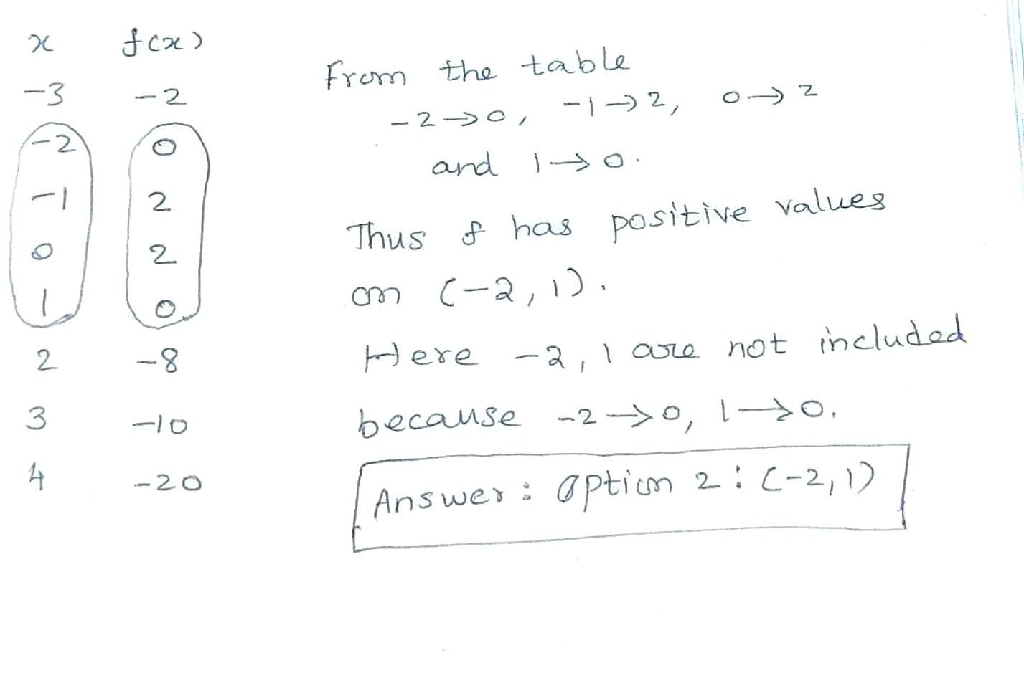 x f(x)
-3 -2
-2 0
-1 2
0 2
1 0
2 -8
3 -10
4 -20
From the table
-2→0, -1→2, 0→2
and 1→0.
Thus f has positive values
on (-2, 1).
Here -2, 1 are not included
because -2→0, 1→0.
Answer: Option 2: (-2, 1)